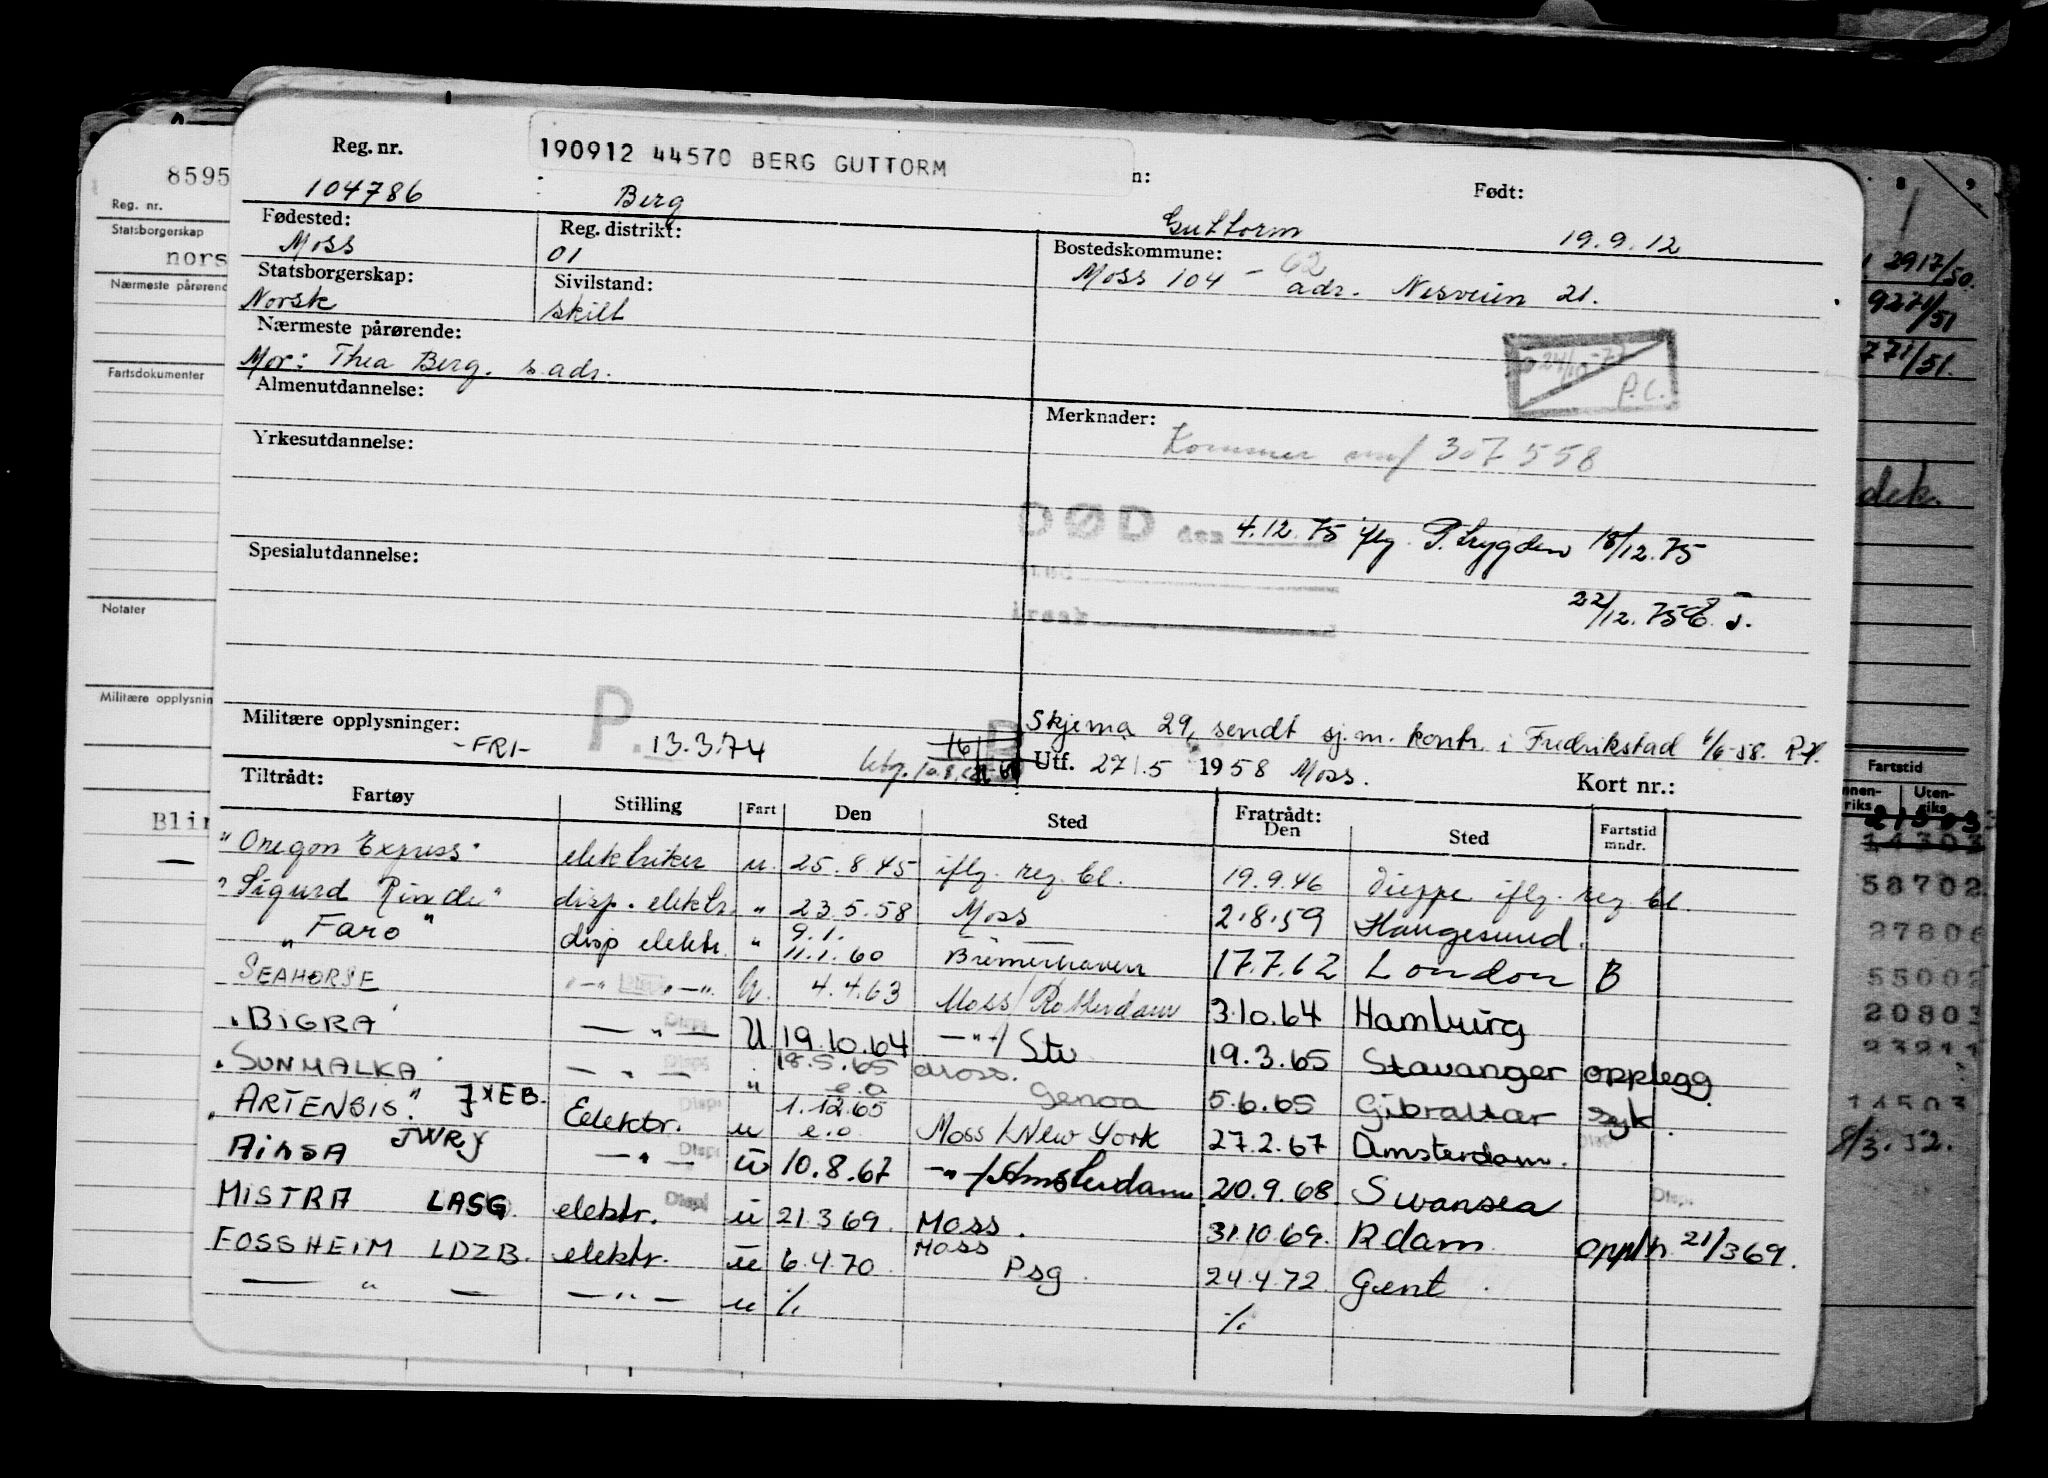 Reg. nr. 190912 44570 BERG GUTTORM n: Født:
104786 Berg Guttorm 19.9.12
Fødested: Reg. distrikt: Bostedskommune:
Moss 01 Moss 104 - 62 adr. Nesveien 21.
Statsborgerskap: Sivilstand:
Norsk skilt
Nærmeste pårørende:
Mor: Thea Berg. s. adr.
24/10-77 P.C.
Almenutdannelse: Merknader:
Kommer 307558
Yrkesutdannelse:
DØD den 4.12.75 iflg. P. trygden 18/12.75
Sted
Spesialutdannelse:
årsak
22/12.75
Militære opplysninger: -FRI- P. 13.3.74
Skjema 29, sendt sj.m. kontr. i Fredrikstad 6/6-58. R.H.
Utf. 27.5 1958 Moss. Kort nr.:
Tiltrådt: Fratrådt:
Fartøy Stilling Fart Den Sted Den Sted Fartstid mndr.
"Oregon Express" elektriker u. 25.8.45 iflg. reg. bl. 19.9.46 Dieppe iflg. reg. bl.
"Sigurd Rinde" disp. elektr. " 23.5.58 Moss 2.8.59 Haugesund.
"Faro" disp elektr. " 9.1. 11.1.60 Bremerhaven 17.7.62 London B
SEAHORSE -"- Disp -"- U. 4.4.63 Moss/Rotterdam 3.10.64 Hamburg
"BIGRA" -"- Disp U 19.10.64 -"-/Stv 19.3.65 Stavanger opplegg
"SUNMALKA" -"- Disp " 18.5.65 e.o Moss. Genoa 5.6.65 Gibraltar syk.
"ARTENSIS." JXEB. Eelektr. Disp u 1.12.65 e.o Moss/New York 27.2.67 Amsterdam.
AINSA JWRJ -"- Disp u 10.8.67 -"-/Amsterdam 20.9.68 Swansea Disp.
MISTRA LASG elektr. Disp u 21.3.69. Moss. 31.10.69. Rdam opph 21/3 69.
FOSSHEIM LDZB. elektr. u 6.4.70 Moss Psg. 24.4.72. Gent.
-"- -"- u ./. ./.
8595
Reg. nr.
Statsborgerskap
nors
Nærmeste pårørend
Fartsdokumenter
Notater
Militære opplysnin
Blin
8 9
2917/50.
9271/51
771/51.
dek.
Fartstid
nnen-riks Uten-riks
21503
14303
58702
27806
55002
20803
23211
14503
8/3.52.